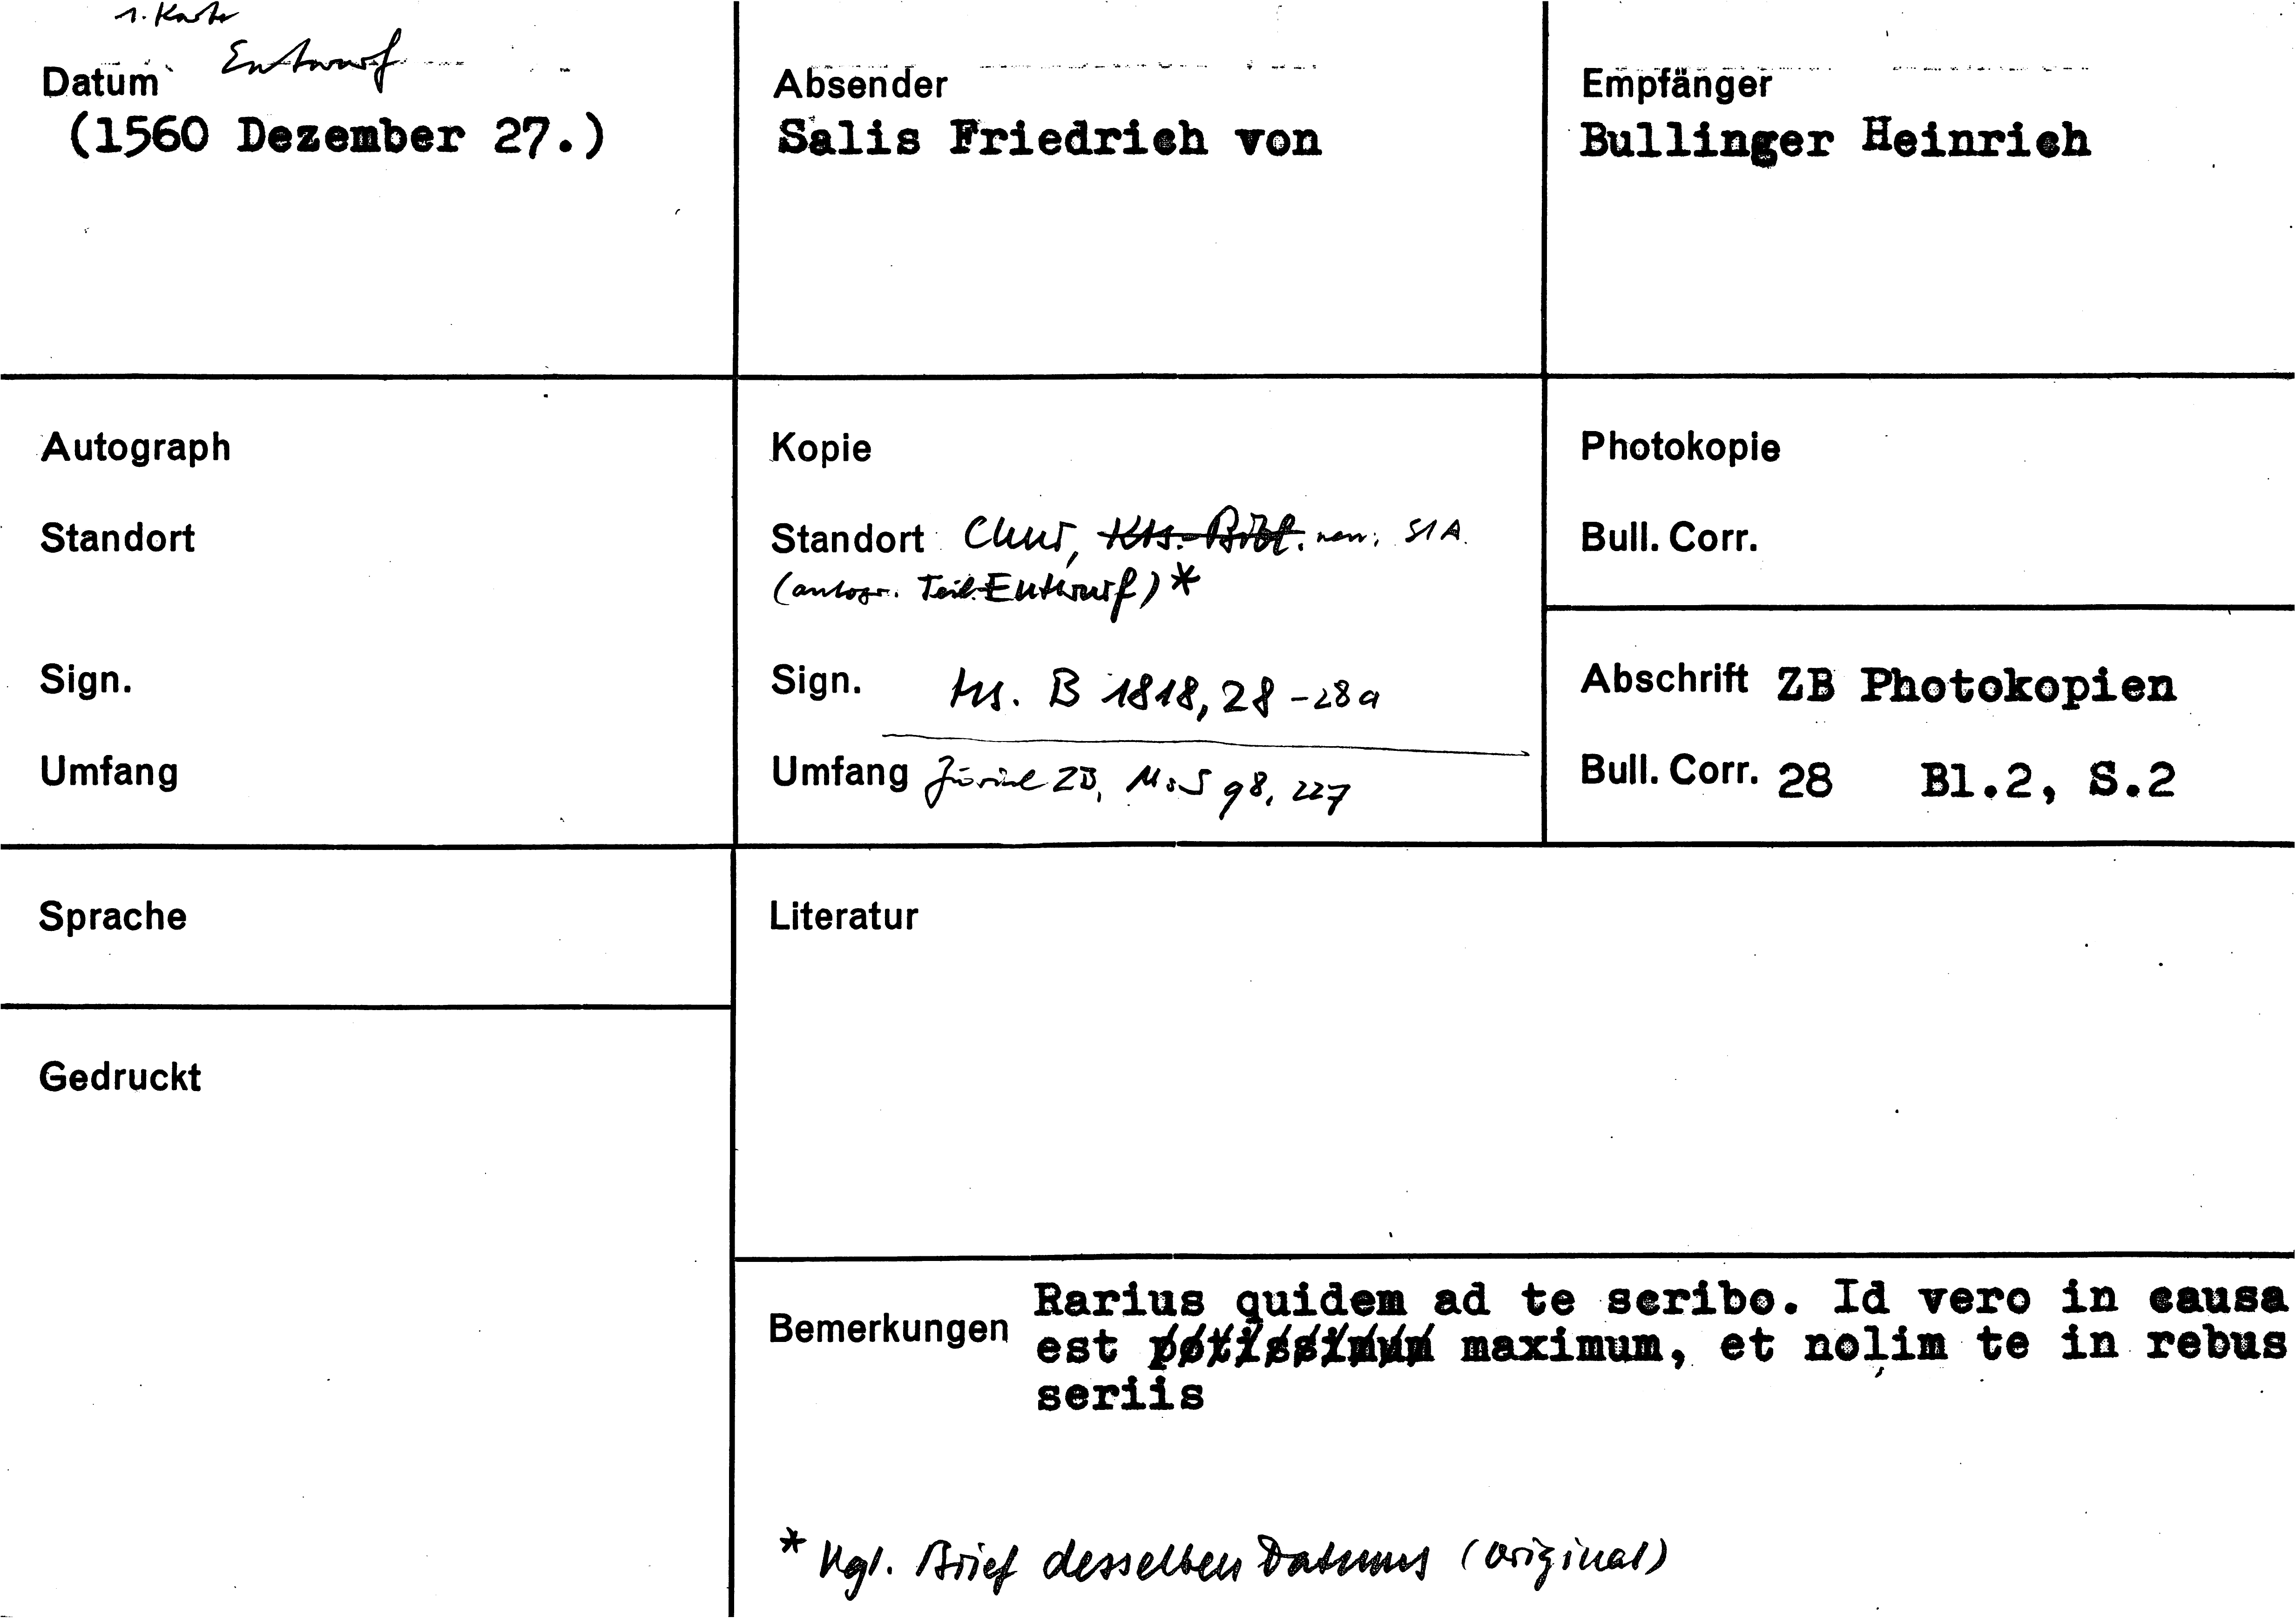 1. Karte
Datum Entwurf
(1560 Dezember 27.)
Absender
Salis Friedrich von
Empfänger
Bullinger Heinrich
Autograph
Standort
Sign.
Umfang
Kopie
Standort Chur, Kts.-Bibl. neu: StA.
(autogr. Teil-Entwurf)*
Sign. Ms. B 1818, 28-28a
Umfang Zürich ZB, Ms S 98, 227
Photokopie
Bull. Corr.
Abschrift ZB Photokopien
Bull. Corr. 28 Bl.2, S.2
Sprache
Gedruckt
Literatur
Bemerkungen
Rarius quidem ad te scribo. Id vero in causa
est potissimum maximum, et nolim te in rebus
seriis
* Vgl. Brief desselben Datums (Original)